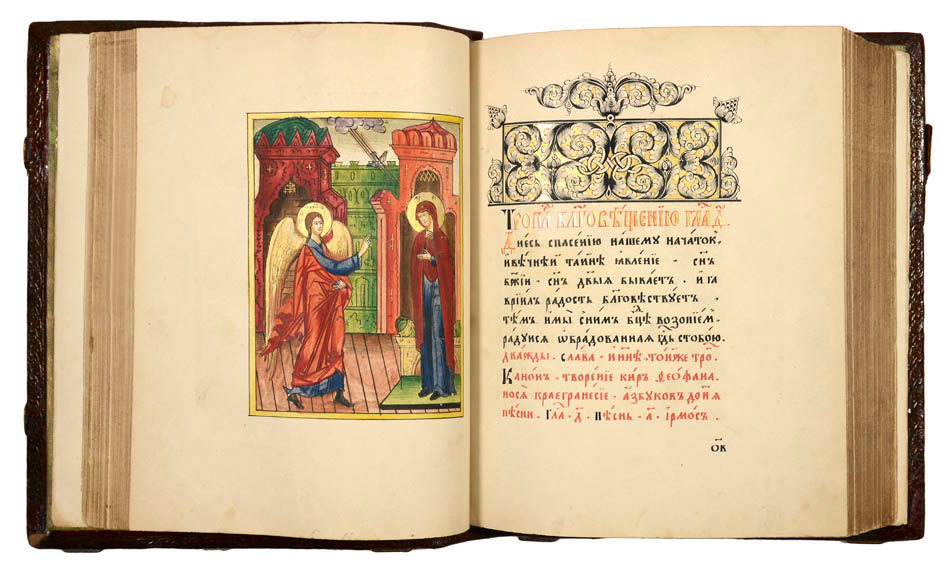 Тропа́ бл҃говѣ́щенїю гла́, д҃.
Дне́сь спасе́нїю на́шему нача́токъ,
и҆ вѣ́чнѣй та́инѣ ꙗ҆вле́нїе · сн҃ъ
бж҃їи · сн҃ъ дв҃ыѧ быва́етъ · и҆ га
врїи́лъ ра́дость бл҃говѣ́ствуетъ ·
тѣ́мъ и҆ мы̀ сни́мъ бц҃ѣ возопїе́м.
ра́дуисѧ ѡ҆бра́дованнаѧ гд҇ь стобо́ю.
два́жды. сла́ва · и҆ ны́нѣ, то́иже тро.
Кано́нъ · творе́нїе ки́ръ ѳео́фана.
нося̀ краегране́сїе · а҆́збуковъ до и҃ ѧ
пѣ́сни. гла́ · д҃. пѣ́снь · а҃. і҆рмо́съ.
ѡ҃в